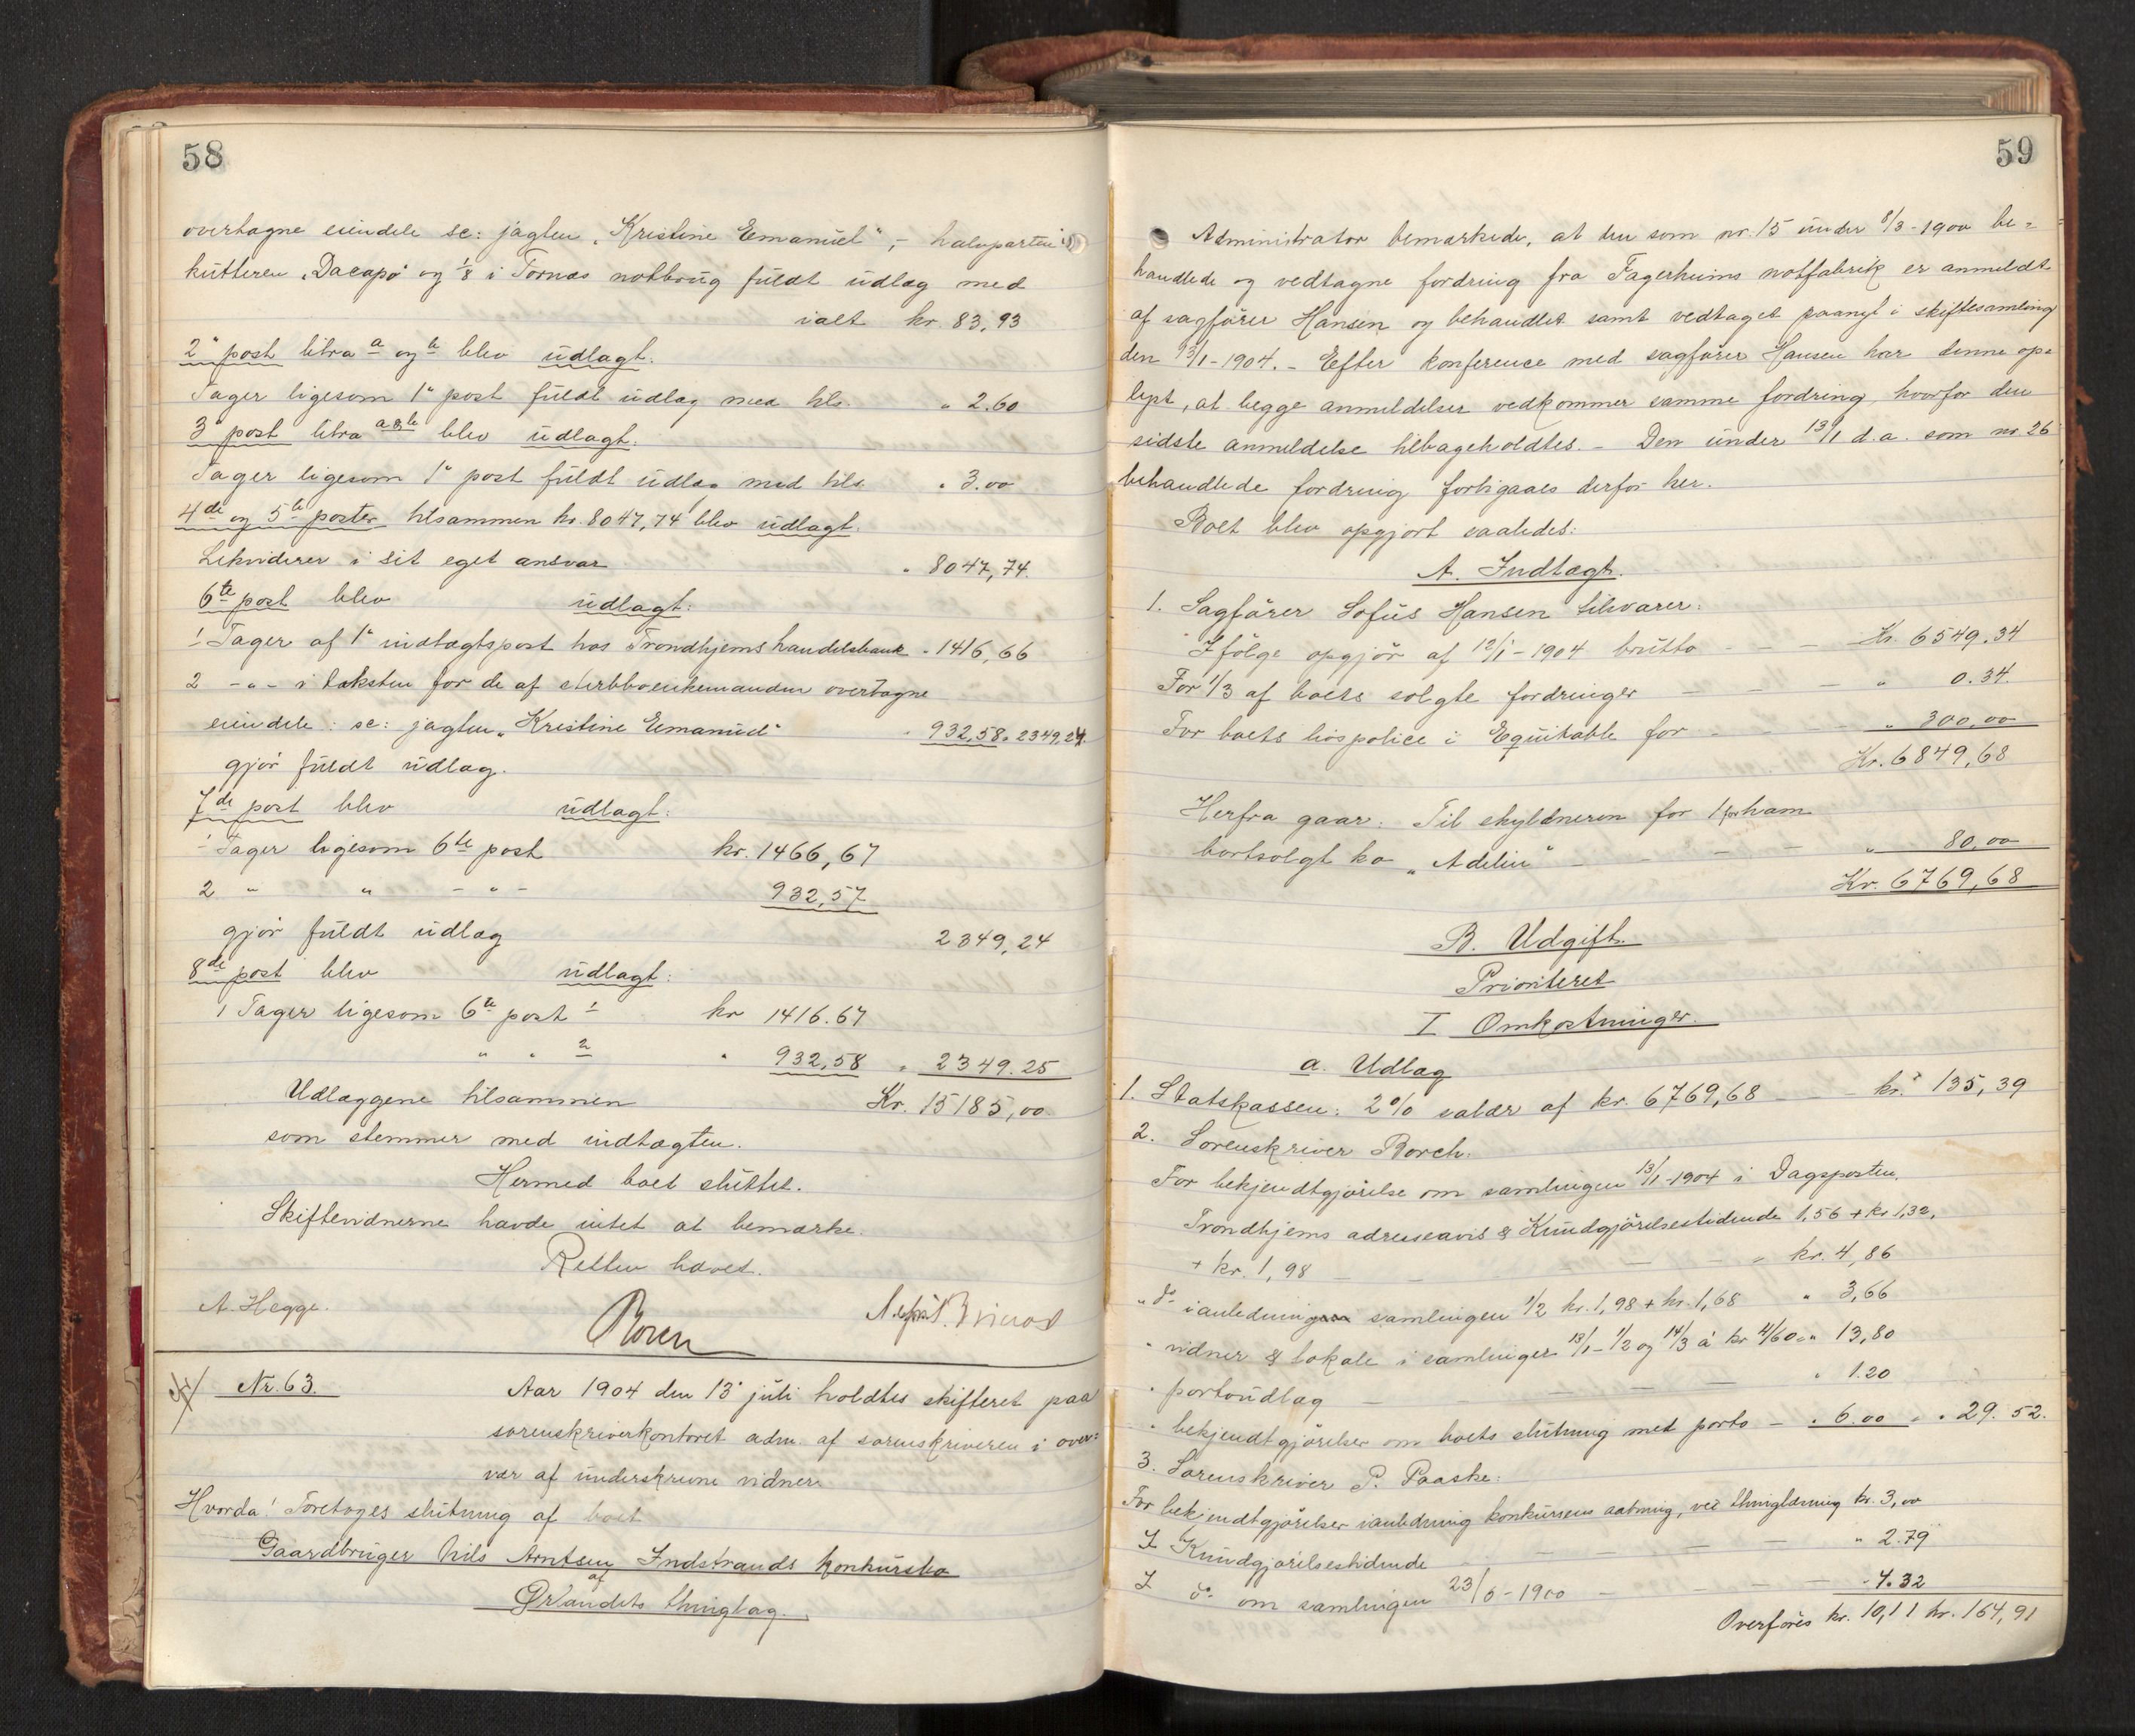 58
overtagne eiendele sc: jagten „Kristine Emanuel“, - halvparten i
kutteren „Dacapo“ og 1/8 i Tornæs notbrug fuldt udlæg med
ialt kr. 83,93
2" post litra a og b blev udlagt.
Tager ligesom 1" post fuldt udlæg med tils. " 2.60
3" post litra a & b blev udlagt.
Tager ligesom 1" post fuldt udlæg med tils. " 3.00
4de og 5te poster tilsammen kr. 8047,74 blev udlagt.
Likviderer i sit eget ansvar " 8047,74.
6te post blev udlagt:
1 Tager af 1" indtægtspost hos Trondhjems handelsbank - 1416,66
2 - " - i taksten for de af sterbboenkemanden overtagne
eiendele: sc: jagten „Kristine Emanuel“ " 932,58 " 2349,24.
gjør fuldt udlæg.
7de post blev udlagt:
1 Tager ligesom 6te post kr. 1466,67
2 " " - " - 932,57
gjør fuldt udlæg 2349,24
8de post blev udlagt:
1 Tager ligesom 6te post 1 kr 1416.67
" " 2 " 932,58 " 2349.25
Udlæggene tilsammen Kr. 15185,00
som stemmer med indtægten.
Hermed boet sluttet.
Skiftevidnerne havde intet at bemærke.
Retten hævet.
A. Hegge.
Nr. 63.
Aar 1904 den 13' juli holdtes skifteret paa
sorenskriverkontoret adm. af sorenskriveren i over=
vær af underskrevne vidner.
Hvorda! Foretoges slutning af boet
Gaardbruger Nils Arntsen Indstrands konkursbo
af
Ørlandets thinglag.
59
Administrator bemærkede, at den som nr. 15 under 8/3-1900 be=
handlede og vedtagne fordring fra Fagerheims notfabrik er anmeldt
af sagfører Hansen og behandlet samt vedtaget paanyt i skiftesamling
den 13/1-1904. - Efter konference med sagfører Hansen har denne op=
lyst, at begge anmeldelser vedkommer samme fordring, hvorfor den
sidste anmeldelse tilbageholdtes. - Den under 13/1 d.a. som nr. 26
behandlede fordring forbigaaes derfor her.
Boet blev opgjort saaledes:
A. Indtægt.
1. Sagfører Sofus Hansen tilsvarer:
Ifølge opgjør af 12/1-1904 brutto - - - Kr. 6549.34
For 1/3 af boets solgte fordringer - - - " 0.34.
For boets livspolice i Equitable for - - " 300,00
Kr. 6849,68
Herfra gaar: Til skyldneren for 1 for ham
bortsolgt ko „Adelin“ - - - - " 80,00
Kr. 6769,68
B. Udgift.
Prioriteret
I Omkostninger.
a. Udlæg
1. Statskassen: 2% saldr af kr. 6769,68 - - kr. 135,39
2. Sorenskriver Borch.
For bekjendtgjørelse om samlingen 13/1-1904 i Dagsposten,
Trondhjems adresseavis & Kundgjørelsestidende 1,56 + kr 1,32,
+ kr. 1,98 - - - - " kr. 4,86
" do i anledning samlingen 1/2 kr. 1,98 + kr. 1,68 " 3,66
" vidner & lokale i samlinger 13/1 - 1/2 og 14/3 á kr 4/60 " " 13,80
" portoudlæg - - - " 1.20
" bekjendtgjørelser om boets slutning med porto - " 6.00 " " 29.52.
3. Sorenskriver P. Paaske:
For bekjendtgjørelser i anledning konkursens aabning, ved thinglæsning kr. 3,00
I Kundgjørelsestidende - - - - " 2.79
I do om samlingen 23/6-1900 - - - - - 4.32
Overføres kr. 10,11 kr. 164,91